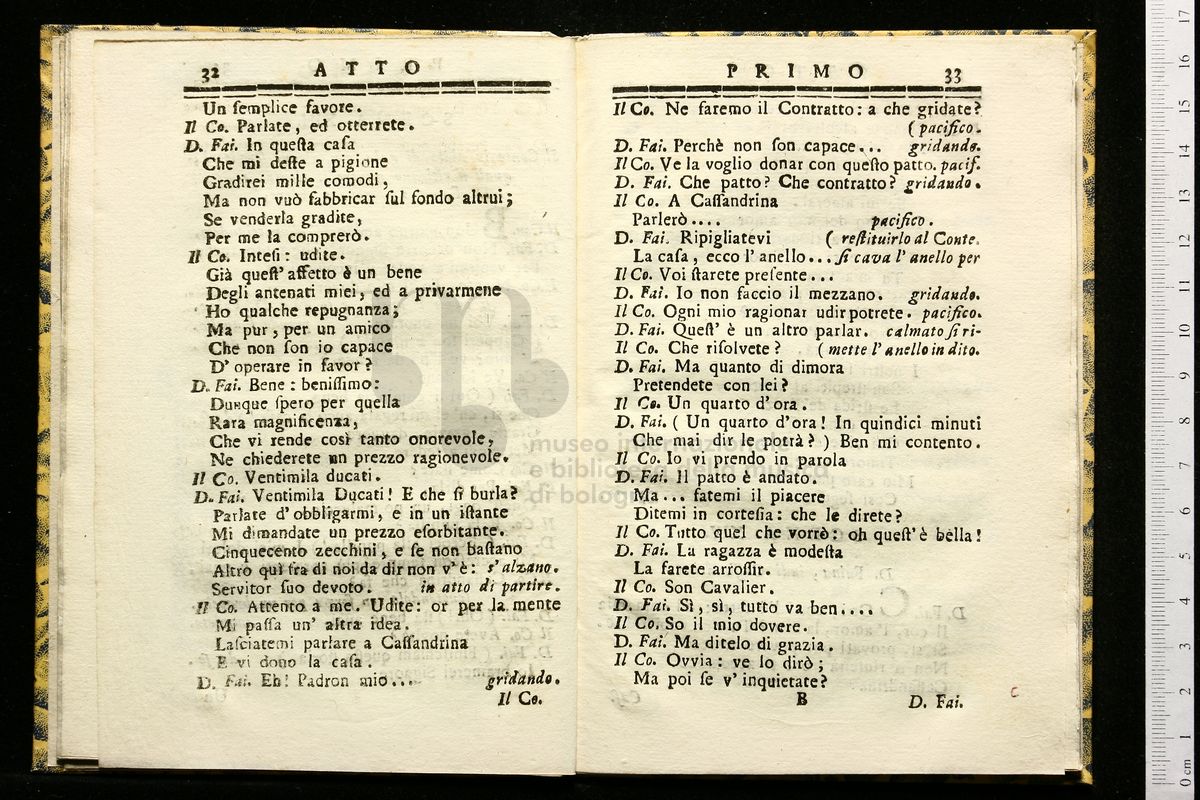 32 ATTO
Un ſemplice favore.
Il Co. Parlate, ed otterrete.
D. Fai. In queſta caſa
Che mi deſte a pigione
Gradirei mille comodi,
Ma non vuò fabbricar ſul fondo altrui;
Se venderla gradite,
Per me la comprerò.
Il Co. Inteſi: udite.
Già queſt' affetto è un bene
Degli antenati miei, ed a privarmene
Ho qualche repugnanza;
Ma pur, per un amico
Che non ſon io capace
D' operare in favor?
D. Fai. Bene: beniſſimo:
Dunque ſpero per quella
Rara magnificenza,
Che vi rende così tanto onorevole,
Ne chiederete un prezzo ragionevole.
Il Co. Ventimila ducati.
D. Fai. Ventimila Ducati! E che ſi burla?
Parlate d' obbligarmi, e in un' iſtante
Mi dimandate un prezzo eſorbitante.
Cinquecento zecchini, e ſe non baſtano
Altro quì fra di noi da dir non v' è: s' alzano.
Servitor ſuo devoto. in atto di partire.
Il Co. Attento a me. Udite: or per la mente
Mi paſſa un' altra idea.
Laſciatemi parlare a Caſſandrina
E vi dono la caſa.
D. Fai. Eh! Padron mio... gridando.
Il Co.
PRIMO 33
Il Co. Ne faremo il Contratto: a che gridate?
(pacifico.
D. Fai. Perchè non ſon capace... gridando.
Il Co. Ve la voglio donar con queſto patto. pacif.
D. Fai. Che patto? Che contratto? gridando.
Il Co. A Caſſandrina
Parlerò.... pacifico.
D. Fai. Ripigliatevi ( reſtituirlo al Conte.
La caſa, ecco l' anello... ſi cava l' anello per
Il Co. Voi ſtarete preſente...
D. Fai. Io non faccio il mezzano. gridando.
Il Co. Ogni mio ragionar udir potrete. pacifico.
D. Fai. Queſt' è un altro parlar. calmato ſi ri-
Il Co. Che riſolvete? ( mette l' anello in dito.
D. Fai. Ma quanto di dimora
Pretendete con lei?
Il Co. Un quarto d' ora.
D. Fai. ( Un quarto d' ora! In quindici minuti
Che mai dir le potrà? ) Ben mi contento.
Il Co. Io vi prendo in parola
D. Fai. Il patto è andato.
Ma... fatemi il piacere
Ditemi in corteſia: che le direte?
Il Co. Tutto quel che vorrò: oh queſt' è bella!
D. Fai. La ragazza è modeſta
La farete arroſſir.
Il Co. Son Cavalier.
D. Fai. Sì, sì, tutto va ben....
Il Co. So il mio dovere.
D. Fai. Ma ditelo di grazia.
Il Co. Ovvia: ve lo dirò;
Ma poi ſe v' inquietate?
B D. Fai.